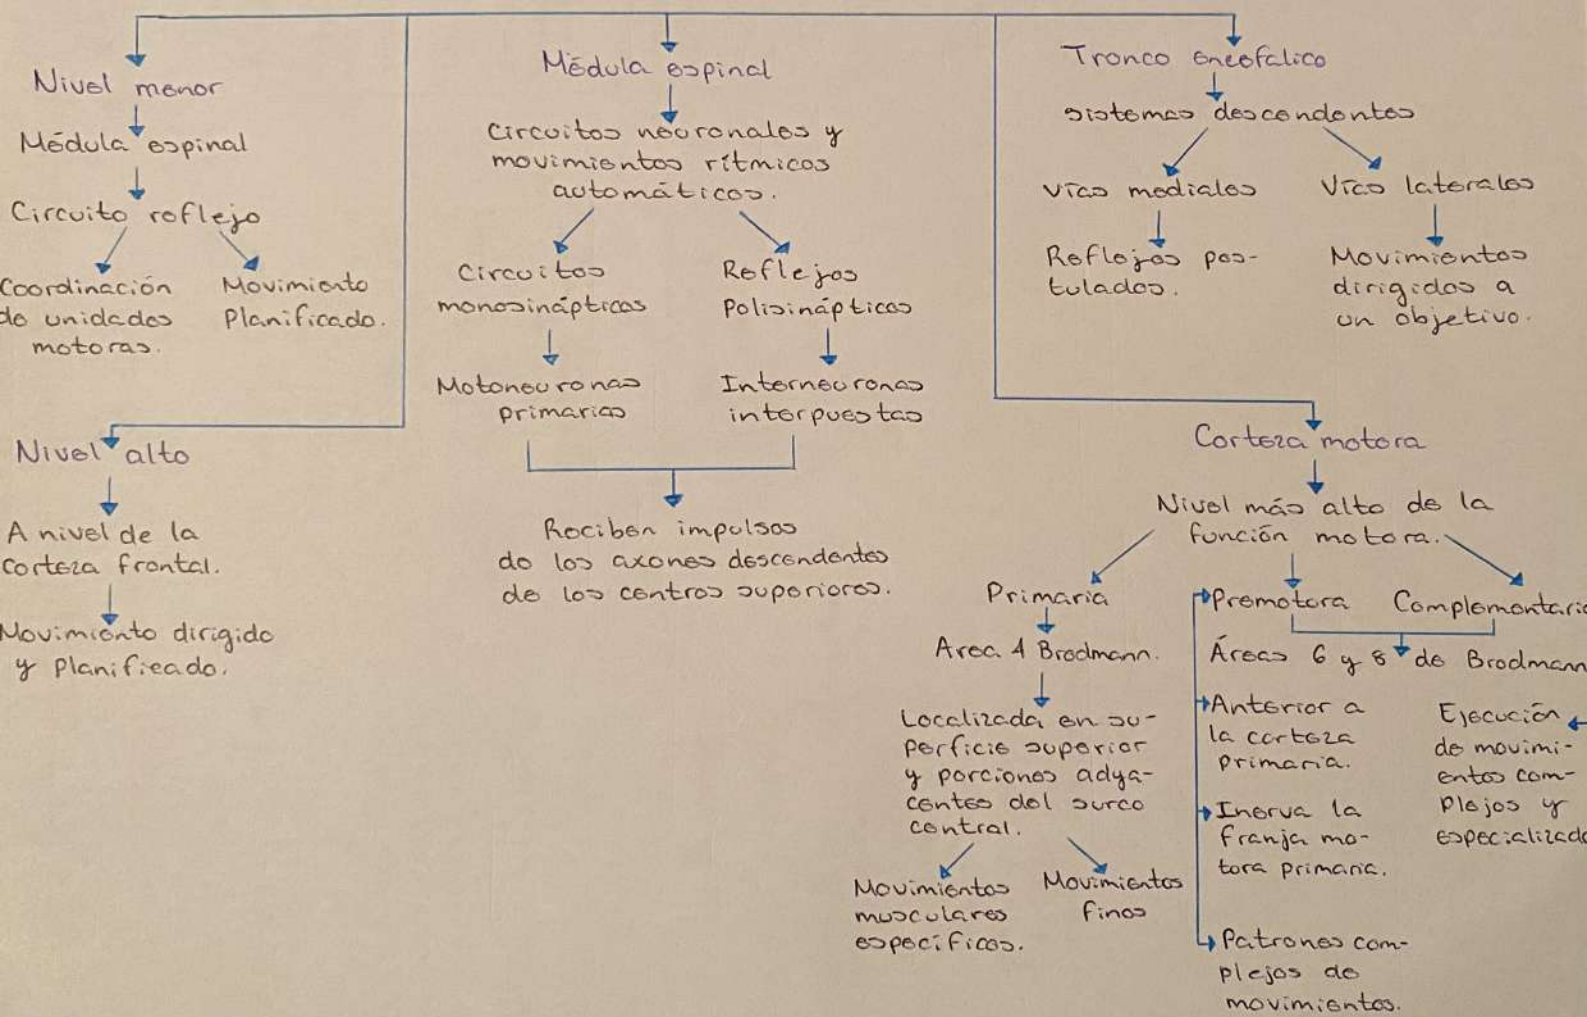 Nivel menor
Médula espinal
Circuito reflejo
Coordinación
de unidades
motoras.
Movimiento
Planificado.
Nivel alto
A nivel de la
corteza frontal.
Movimiento dirigido
y Planificado.
Médula espinal
Circuitos neuronales y
movimientos rítmicos
automáticos.
Circuitos
monosinápticos
Motoneuronas
primarias
Reflejos
Polisinápticos
Interneuronas
interpuestas
Reciben impulsos
de los axones descendentes
de los centros superiores.
Tronco encefálico
sistemas descendentes
Vías mediales
Reflejos pos-
tulados.
Vías laterales
Movimientos
dirigidos a
un objetivo.
Corteza motora
Nivel más alto de la
función motora.
Primaria
Area 4 Brodmann.
Localizada en su-
perficie superior
y porciones adya-
centes del surco
central.
Movimientos
musculares
específicos.
Movimientos
finos
Premotora Complementaria
Áreas 6 y 8 de Brodmann
Anterior a
la corteza
primaria.
Inerva la
franja mo-
tora primaria.
Patrones com-
plejos de
movimientos.
Ejecución
de movimi-
entos com-
plejos y
especializado